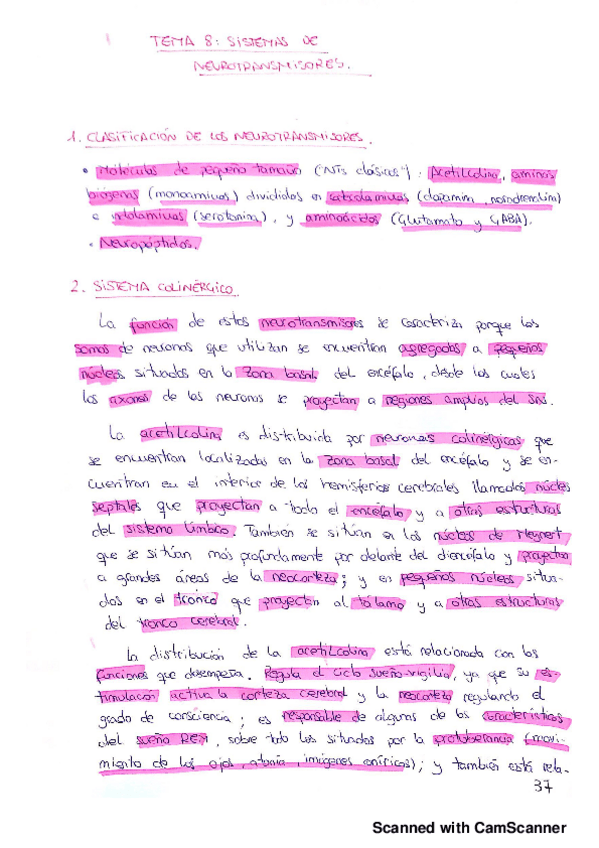 TEMA 8: SISTEMAS DE
NEUROTRANSMISORES.
1. CLASIFICACIÓN DE LOS NEUROTRANSMISORES.
• Moléculas de pequeño tamaño ("NTs clásicos"): Acetilcolina, aminas
biógenas (monoaminas) divididos en catecolaminas (dopamina, noradrenalina)
e indolaminas (serotonina), y aminoácidos (Glutamato y GABA).
• Neuropéptidos.
2. SISTEMA COLINÉRGICO
La función de estos neurotransmisores se caracteriza porque los
somas de neuronas que utilizan se encuentran agregados a pequeños
núcleos situados en la zona basal del encéfalo, desde los cuales
los axones de las neuronas se proyectan a regiones amplias del SNS.
La acetilcolina es distribuida por neuronas colinérgicas que
se encuentran localizadas en la zona basal del encéfalo y se en-
cuentran en el interior de los hemisferios cerebrales llamados núcleos
septales que proyectan a todo el encéfalo y a otras estructuras
del sistema límbico. También se sitúan en los núcleos de Meynert
que se sitúan más profundamente por delante del diencéfalo y proyectan
a grandes áreas de la neocorteza; y en pequeños núcleos situa-
dos en el tronco que proyectan al tálamo y a otras estructuras
del tronco cerebral.
La distribución de la acetilcolina está relacionada con las
funciones que desempeña. Regula el ciclo sueño-vigilia, ya que su es-
timulación activa la corteza cerebral y la neocorteza regulando el
grado de consciencia; es responsable de algunas de las características
del sueño REM, sobre todo las situadas por la protuberancia (movi-
miento de los ojos, atonía, imágenes oníricas); y también está rela-
37
Scanned with CamScanner